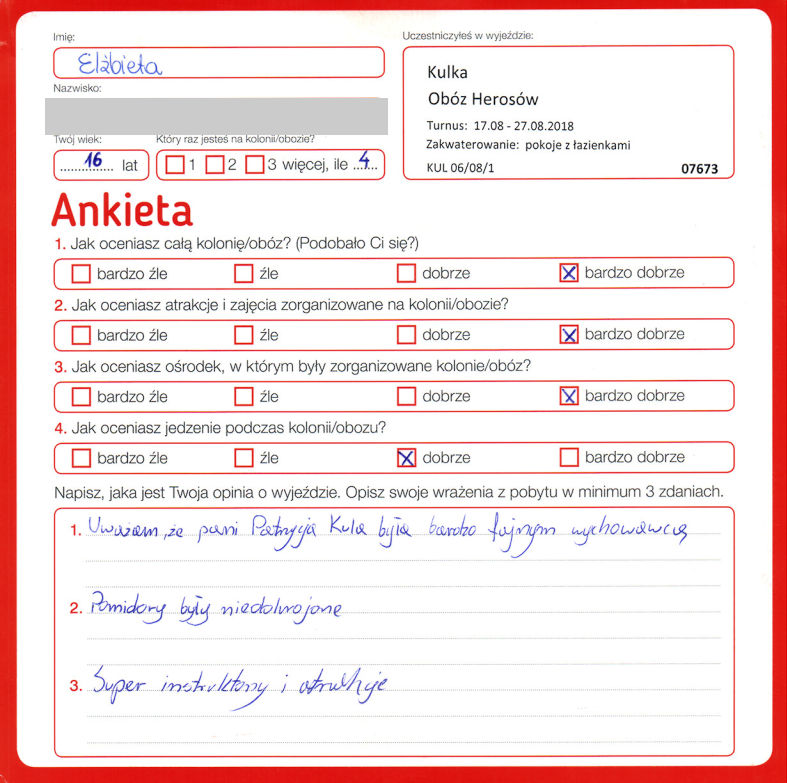 Imię:
Elżbieta
Nazwisko:
Twój wiek:
16 lat
Który raz jesteś na kolonii/obozie?
1 2 3 więcej, ile 4
Uczestniczyłeś w wyjeździe:
Kulka
Obóz Herosów
Turnus: 17.08 - 27.08.2018
Zakwaterowanie: pokoje z łazienkami
KUL 06/08/1 07673
Ankieta
1. Jak oceniasz całą kolonię/obóz? (Podobało Ci się?)
bardzo źle źle dobrze bardzo dobrze
2. Jak oceniasz atrakcje i zajęcia zorganizowane na kolonii/obozie?
bardzo źle źle dobrze bardzo dobrze
3. Jak oceniasz ośrodek, w którym były zorganizowane kolonie/obóz?
bardzo źle źle dobrze bardzo dobrze
4. Jak oceniasz jedzenie podczas kolonii/obozu?
bardzo źle źle dobrze bardzo dobrze
Napisz, jaka jest Twoja opinia o wyjeździe. Opisz swoje wrażenia z pobytu w minimum 3 zdaniach.
1. Uważam, że pani Patrycja Kula była bardzo fajnym wychowawcą
2. Pomidory były niedokrojone
3. Super instruktorzy i atrakcje